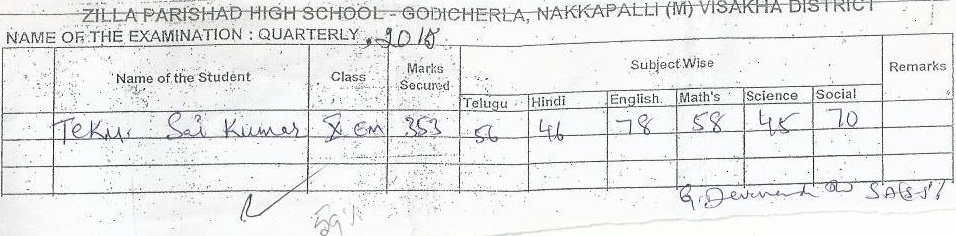 ZILLA PARISHAD HIGH SCHOOL - GODICHERLA, NAKKAPALLI (M) VISAKHA DISTRICT
NAME OF THE EXAMINATION : QUARTERLY, 2015
Name of the Student Class Marks Secured Subject Wise Remarks
Telugu Hindi English Math's Science Social
Teku. Sai Kumar X EM 353 56 46 78 58 45 70
59%